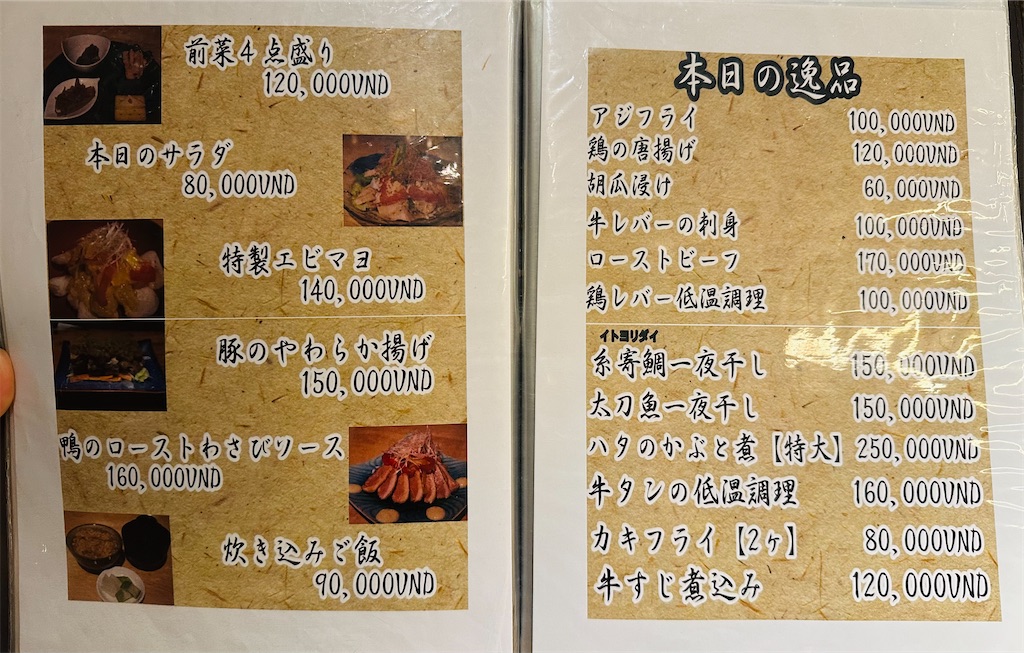 前菜4点盛り
120,000VND
本日のサラダ
80,000VND
特製エビマヨ
140,000VND
豚のやわらか揚げ
150,000VND
鴨のローストわさびソース
160,000VND
炊き込みご飯
90,000VND
本日の逸品
アジフライ 100,000VND
鶏の唐揚げ 120,000VND
胡瓜浸け 60,000VND
牛レバーの刺身 100,000VND
ローストビーフ 170,000VND
鶏レバー低温調理 100,000VND
イトヨリダイ
糸寄鯛一夜干し 150,000VND
太刀魚一夜干し 150,000VND
ハタのかぶと煮【特大】 250,000VND
牛タンの低温調理 160,000VND
カキフライ【2ヶ】 80,000VND
牛すじ煮込み 120,000VND